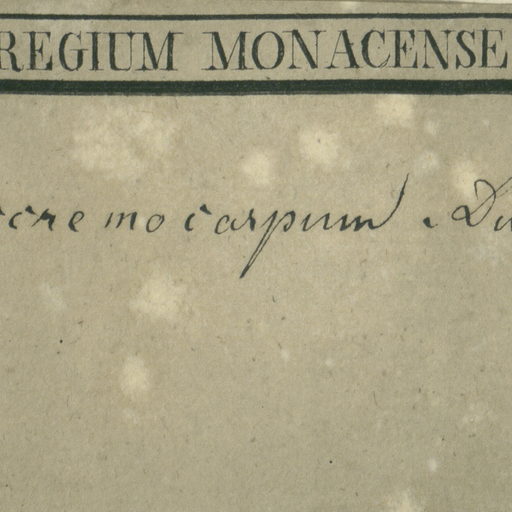 REGIUM MONACENSE
cremocarpum. Du